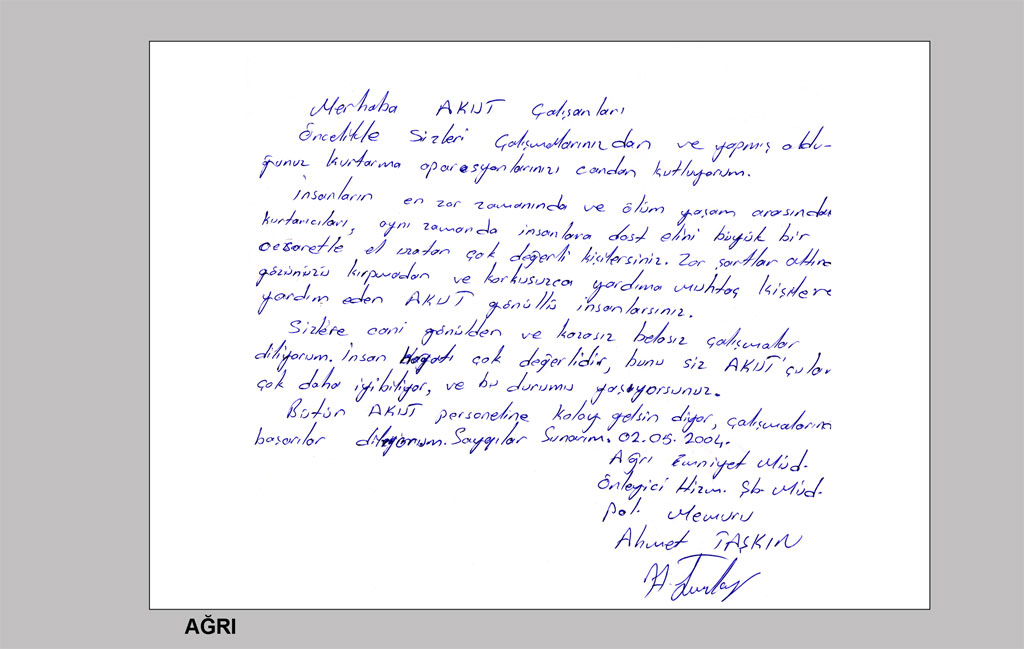 Merhaba AKUT Çalışanları
Öncelikle Sizleri Çalışmalarınızdan ve yapmış oldu-
ğunuz kurtarma oparasyonlarınızı candan kutluyorum.
İnsanların en zor zamanında ve ölüm yaşam arasından
kurtarıcıları, aynı zamanda insanlara dost elini büyük bir
cesaretle el uzatan çok değerli kişilersiniz. Zor şartlar altına
gözünüzü kırpmadan ve korkusuzca yardıma muhtaç kişilere
yardım eden AKUT gönüllü insanlarsınız.
Sizlere cani gönülden ve kazasız belasız çalışmalar
diliyorum. İnsan Hayatı çok değerlidir, bunu siz AKUT'çular
çok daha iyibiliyor, ve bu durumu yaşıyorsunuz.
Bütün AKUT personeline kolay gelsin diyor, çalışmaların
başarılar diliyorum. Saygılar Sunarım. 02.05.2004.
Ağrı Emniyet Müd.
Önleyici Hizm. Şb. Müd.
Pol. Memuru
Ahmet TAŞKIN
AĞRI